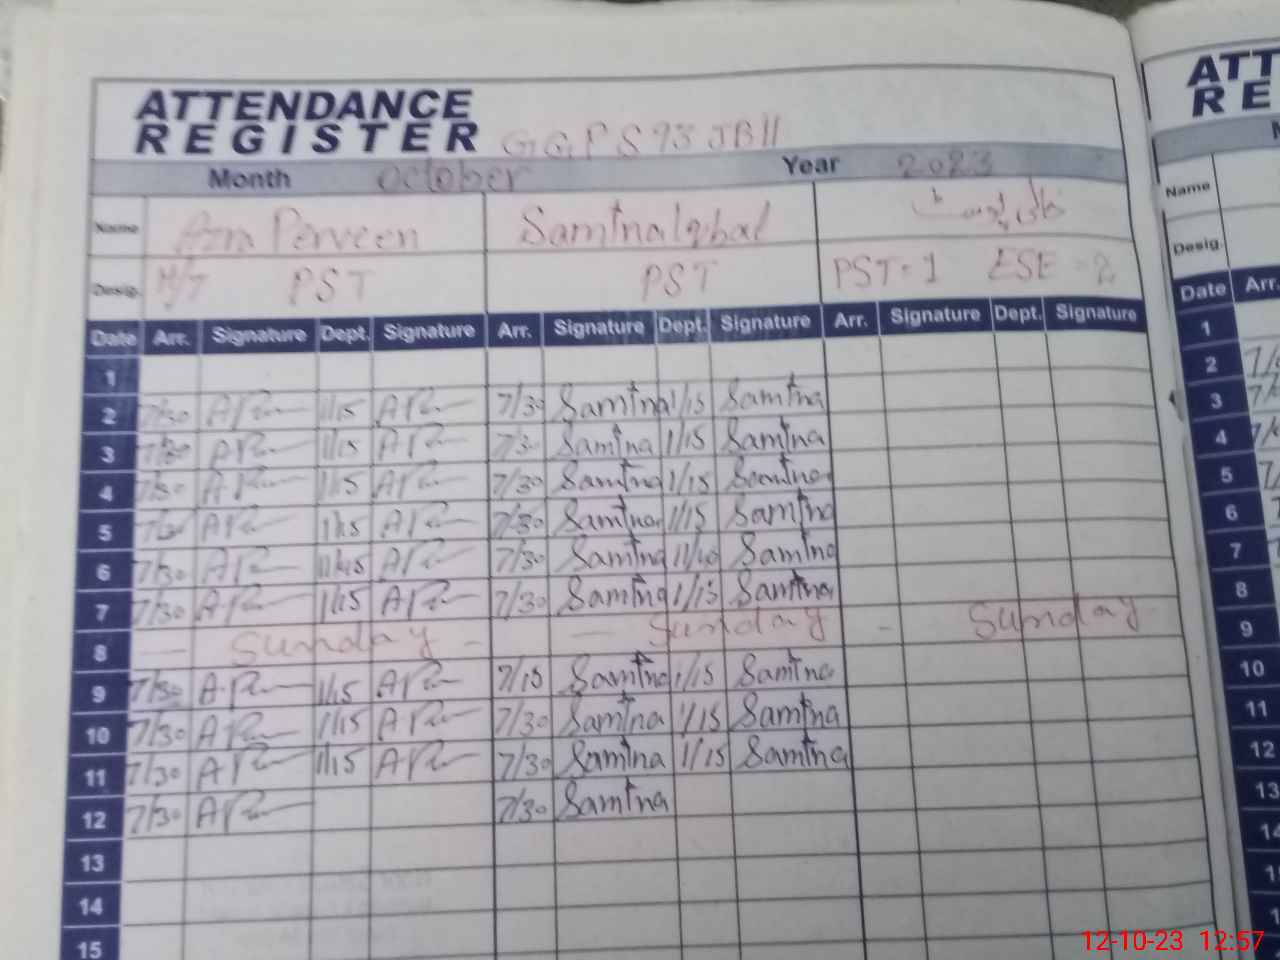 ATTENDANCE
REGISTER G.G.P.S 93 JB II
Month October Year 2023
Name Perveen Samina Iqbal
Desig. H/T PST PST PST = 1 ESE = 2
Date Arr. Signature Dept. Signature Arr. Signature Dept. Signature Arr. Signature Dept. Signature
1
2 7/30 1/15 7/30 Samina 1/15 Samina
3 7/30 1/15 7/30 Samina 1/15 Samina
4 7/30 1/15 7/30 Samina 1/15 Samina
5 7/30 1/15 7/30 Samina 1/15 Samina
6 7/30 11/45 7/30 Samina Samina
7 7/30 1/15 7/30 Samina 1/15 Samina
8 — Sunday - — Sunday - Sunday -
9 7/30 1/15 7/15 Samina 1/15 Samina
10 7/30 1/15 7/30 Samina 1/15 Samina
11 7/30 1/15 7/30 Samina 1/15 Samina
12 7/30 7/30 Samina
13
14
15
ATT
RE
Name
Desig.
Date Arr.
1
2
3
4
5
6
7
8
9
10
11
12
13
12-10-23 12:57